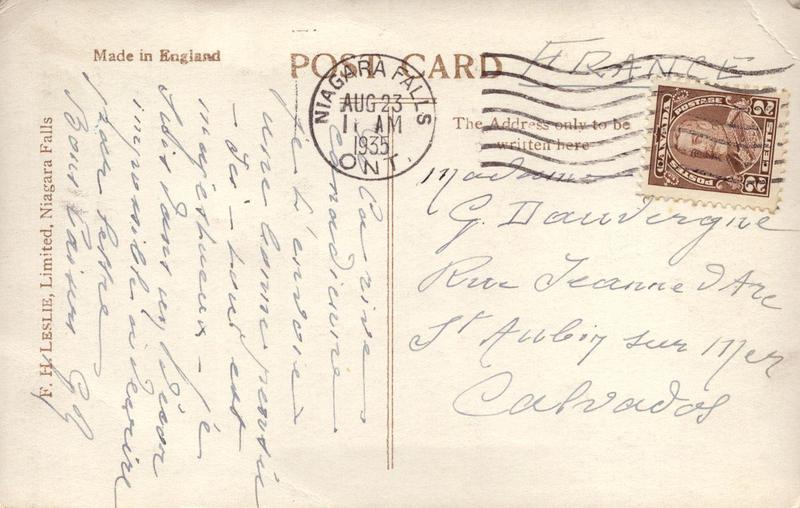 Made in England
POST CARD
FRANCE
NIAGARA FALLS
AUG 23
AM
1935
ONT.
CANADA
POSTAGE POSTES
2 CENTS 2
The Address only to be
written here
Madame
G. Dauvergne
Rue Jeanne d'Arc
St Aubin sur Mer
Calvados
De la rive
Canadienne
je t'envoie
une bonne pensée
- Ici - tout est
majestueux - je
suis dans un décor
impossible à décrire
par lettre
Bons baisers
F. H. LESLIE, Limited, Niagara Falls